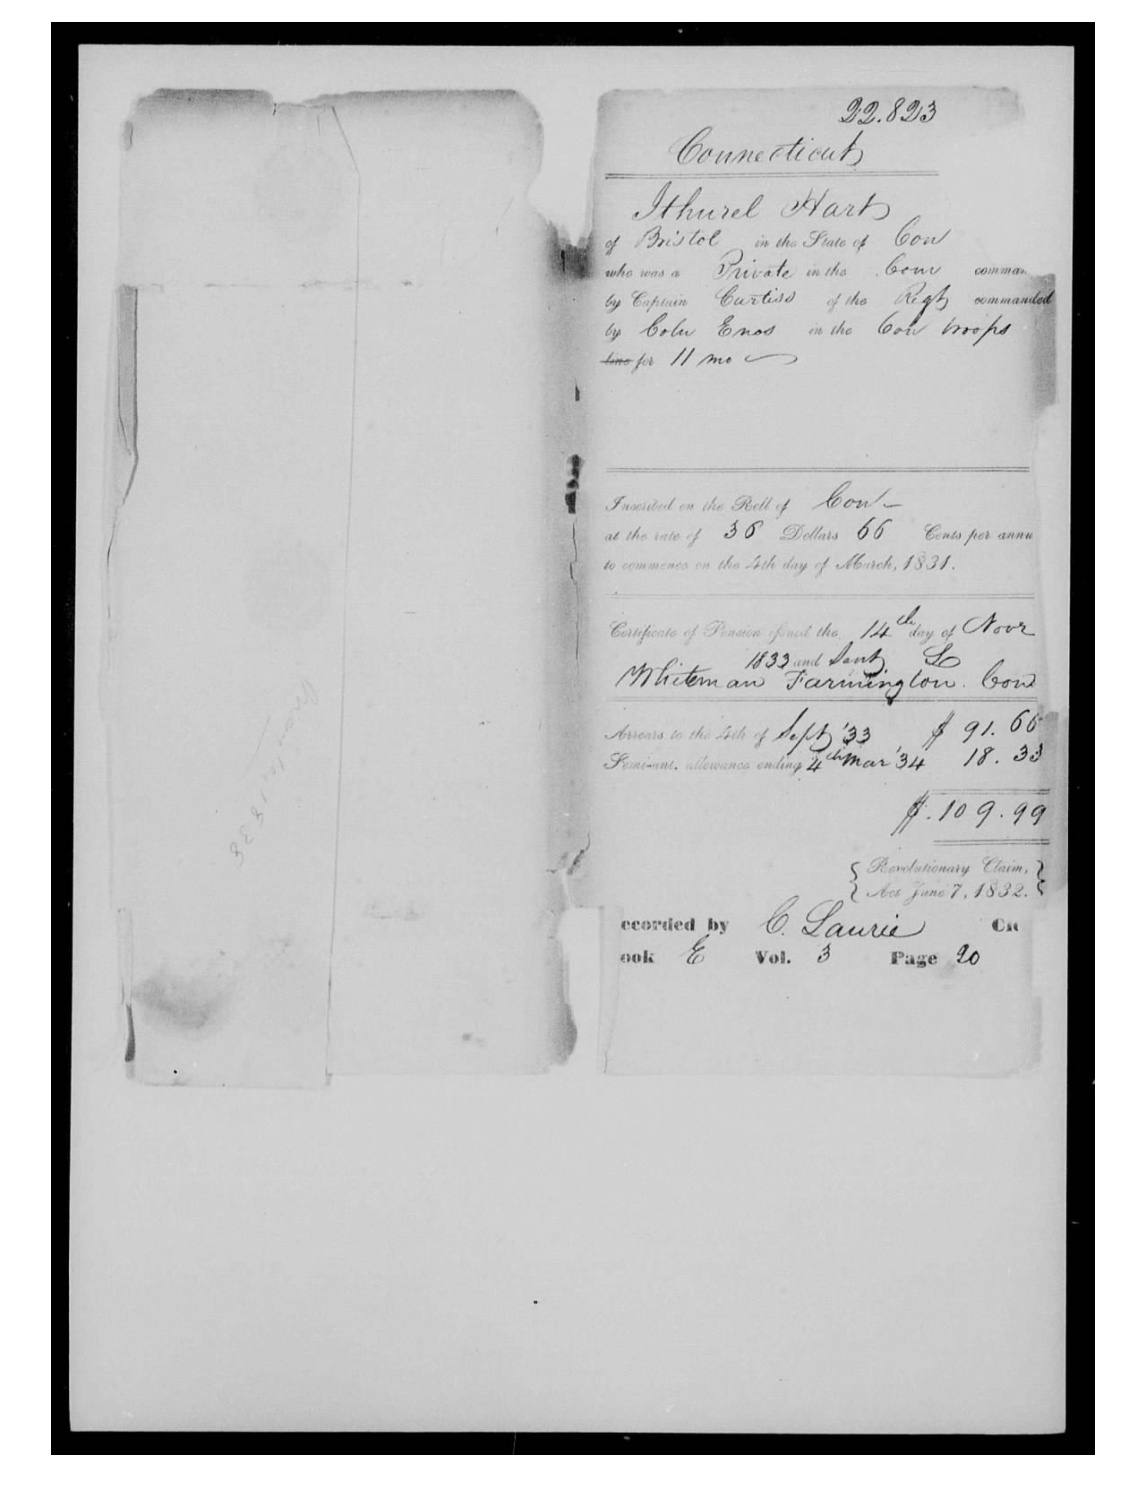 22.823
Connecticut
Ithurel Hart
of Bristol in the State of Con
who was a Private in the Com comman
by Captain Curtiss of the Regt commanded
by Coln Enos in the Con troops
line for 11 mo
Inscribed on the Roll of Con
at the rate of 36 Dollars 66 Cents per annu
to commence on the 4th day of March, 1831.
Certificate of Pension issued the 14th day of Novr
1833 and Sent S
Whiteman Farmington. Con
Arrears to the 4th of Sept '33 $ 91.66
Semi-anl. allowance ending 4th Mar '34 18.33
$.109.99
Revolutionary Claim,
Act June 7, 1832.
ecorded by C. Laurie Cle
ook E Vol. 3 Page 20
1838